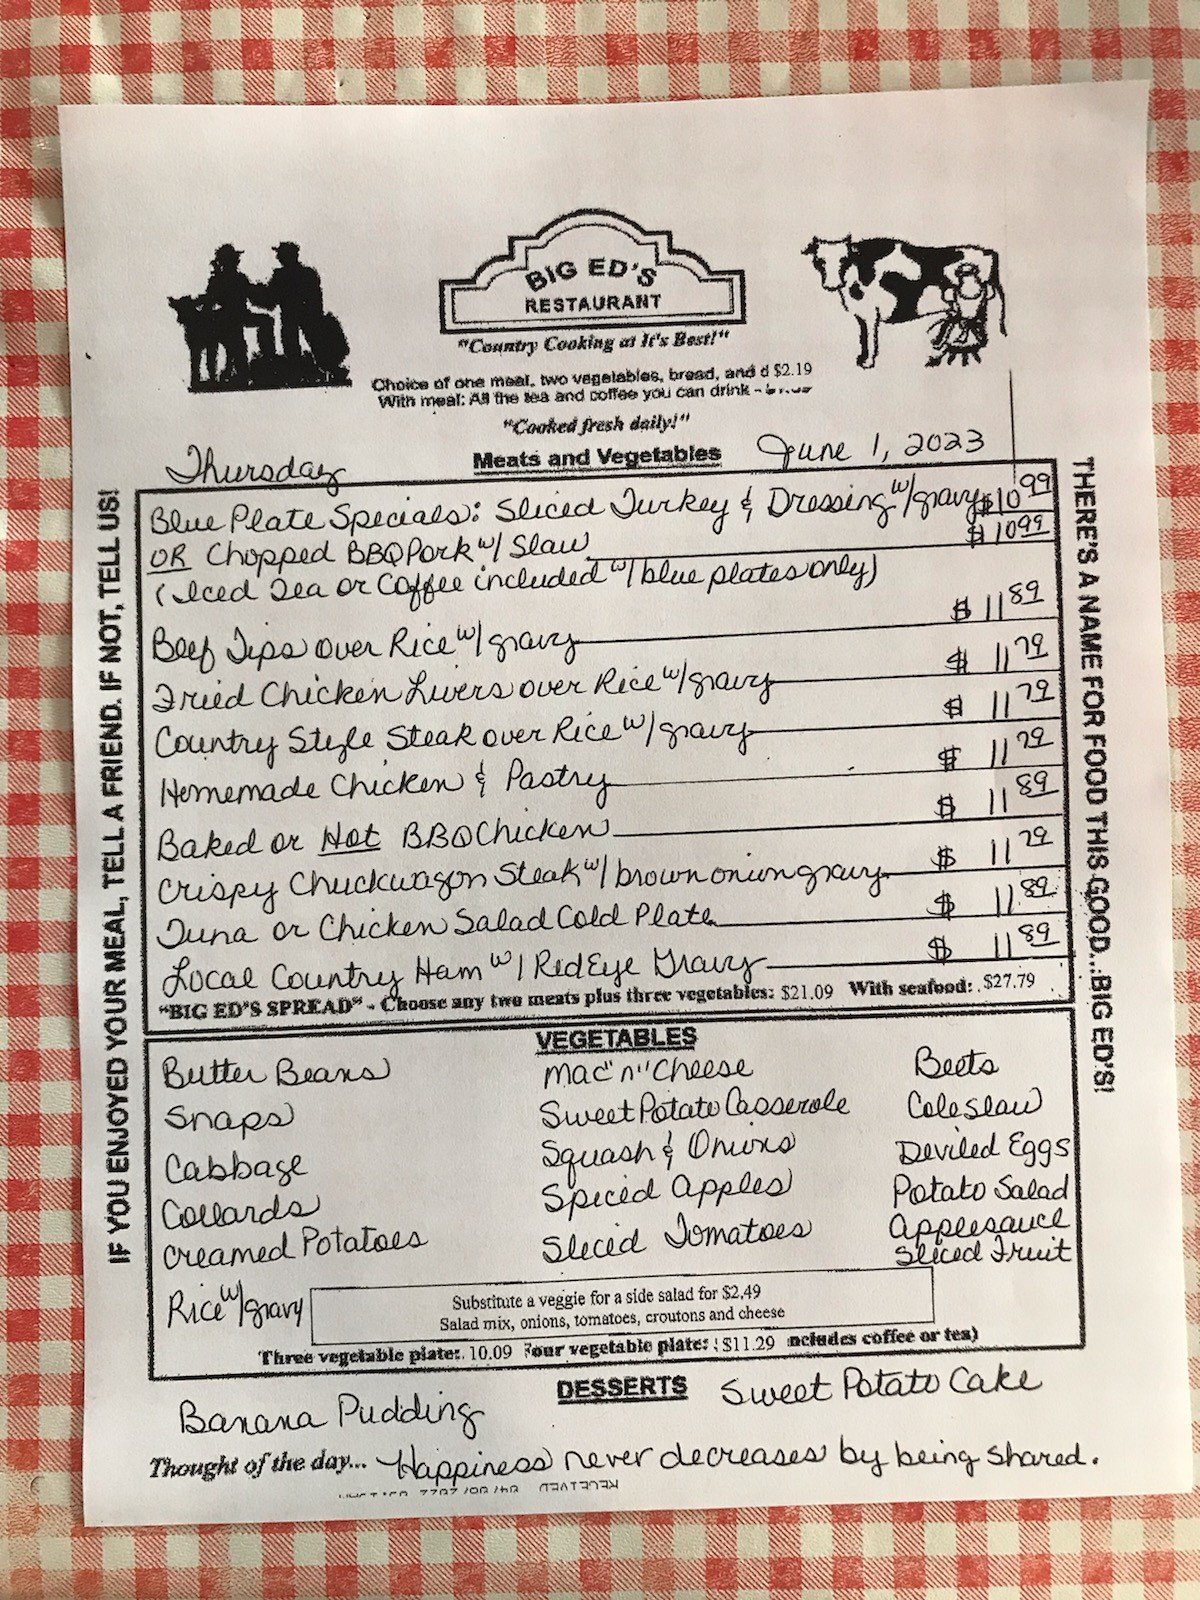 BIG ED'S
RESTAURANT
"Country Cooking at It's Best!"
Choice of one meat, two vegetables, bread, and d $2.19
With meal: All the tea and coffee you can drink -
"Cooked fresh daily!"
Thursday Meats and Vegetables June 1, 2023
Blue Plate Specials: Sliced Turkey & Dressing w/gravy $10.99
OR Chopped BBQ Pork w/ Slaw $10.99
(Iced Tea or Coffee included w/ blue plates only)
Beef Tips over Rice w/ gravy $11.89
Fried Chicken Livers over Rice w/gravy $11.79
Country Style Steak over Rice w/ gravy $11.79
Homemade Chicken & Pastry $11.79
Baked or Hot BBQ Chicken $11.89
Crispy Chuckwagon Steak w/ brown onion gravy $11.79
Tuna or Chicken Salad Cold Plate $11.89
Local Country Ham w/ Red Eye Gravy $11.89
"BIG ED'S SPREAD" - Choose any two meats plus three vegetables: $21.09 With seafood: $27.79
IF YOU ENJOYED YOUR MEAL, TELL A FRIEND. IF NOT, TELL US!
THERE'S A NAME FOR FOOD THIS GOOD...BIG ED'S!
VEGETABLES
Butter Beans Mac "n" Cheese Beets
Snaps Sweet Potato Casserole Coleslaw
Cabbage Squash & Onions Deviled Eggs
Collards Spiced Apples Potato Salad
Creamed Potatoes Sliced Tomatoes Applesauce
Sliced Fruit
Rice w/gravy
Substitute a veggie for a side salad for $2,49
Salad mix, onions, tomatoes, croutons and cheese
Three vegetable plate: 10.09 Four vegetable plate: $11.29 ncludes coffee or tea)
DESSERTS
Banana Pudding Sweet Potato Cake
Thought of the day... Happiness never decreases by being shared.